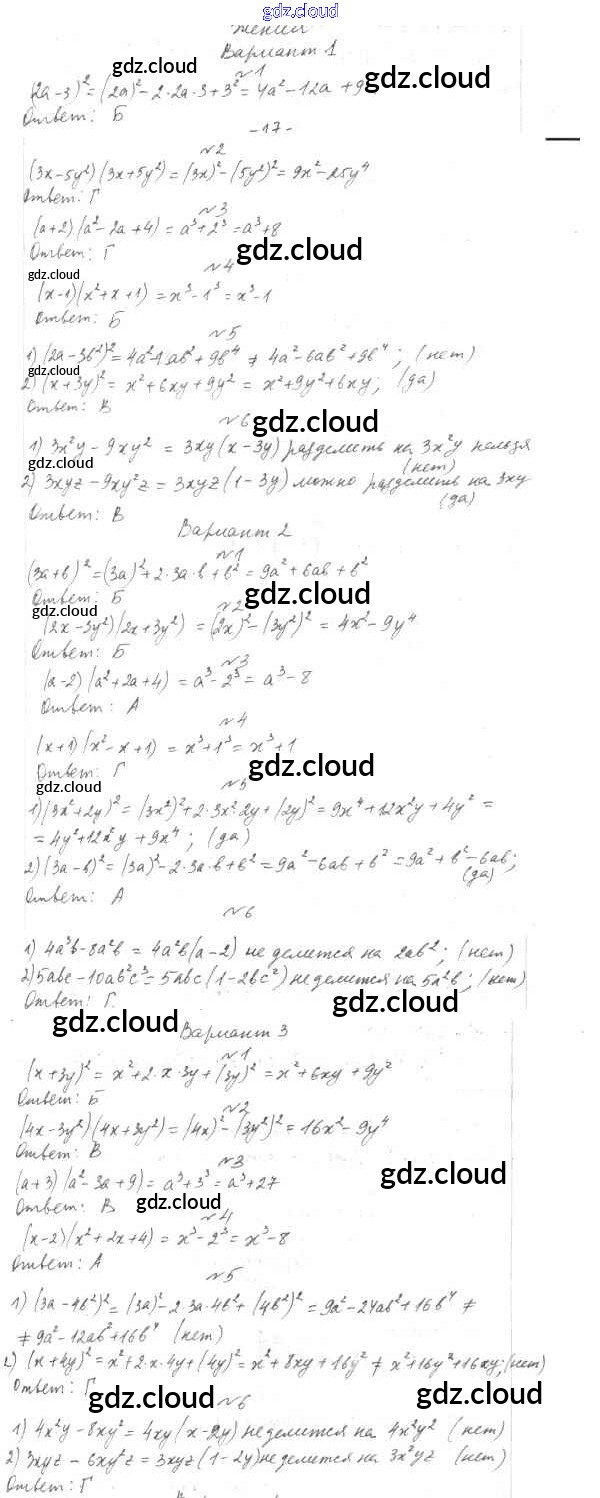 gdz.cloud
жений
Вариант 1
gdz.cloud
gdz.cloud
№1
(2a-3)² = (2a)² - 2·2a·3 + 3² = 4a² - 12a + 9
Ответ: Б
-17-
№2
(3x-5y²)(3x+5y²) = (3x)² - (5y²)² = 9x² - 25y⁴
Ответ: Г
№3
(a+2)(a²-2a+4) = a³+2³ = a³+8
Ответ: Г
gdz.cloud
№4
gdz.cloud
(x-1)(x²+x+1) = x³-1³ = x³-1
Ответ: Б
№5
1) (2a-3b²)² = 4a² ab² + 9b⁴ ≠ 4a²-6ab²+9b⁴; (нет)
gdz.cloud
2) (x+3y)² = x²+6xy+9y² = x²+9y²+6xy; (да)
Ответ: В
gdz.cloud
№6
1) 3x²y - 9xy² = 3xy(x-3y) разделить на 3x²y нельзя
(нет)
gdz.cloud
2) 3xyz - 9xy²z = 3xyz(1-3y) можно разделить на 3xy
(да)
Ответ: В
Вариант 2
№1
(3a+b)² = (3a)²+2·3a·b+b² = 9a²+6ab+b²
Ответ: Б
gdz.cloud
gdz.cloud
№2
(2x-3y²)(2x+3y²) = (2x)²-(3y²)² = 4x²-9y⁴
Ответ: Б
№3
(a-2)(a²+2a+4) = a³-2³ = a³-8
Ответ: А
№4
(x+1)(x²-x+1) = x³+1³ = x³+1
Ответ: Г
gdz.cloud
gdz.cloud
№5
1) (3x²+2y)² = (3x²)²+2·3x²·2y+(2y)² = 9x⁴+12x²y+4y² =
= 4y²+12x²y+9x⁴; (да)
2) (3a-b)² = (3a)²-2·3a·b+b² = 9a²-6ab+b² = 9a²+b²-6ab;
(да)
Ответ: А
№6
1) 4a³b-8a²b = 4a²b(a-2) не делится на 2ab²; (нет)
2) 5abc-10ab²c³ = 5abc(1-2bc²) не делится на 5a²b; (нет)
Ответ: Г.
gdz.cloud
gdz.cloud
Вариант 3
№1
(x+3y)² = x²+2·x·3y+(3y)² = x²+6xy+9y²
Ответ: Б
№2
(4x-3y²)(4x+3y²) = (4x)²-(3y²)² = 16x²-9y⁴
Ответ: В
№3
(a+3)(a²-3a+9) = a³+3³ = a³+27
gdz.cloud
Ответ: В
gdz.cloud
№4
(x-2)(x²+2x+4) = x³-2³ = x³-8
Ответ: А
№5
1) (3a-4b²)² = (3a)²-2·3a·4b²+(4b²)² = 9a²-24ab²+16b⁴ ≠
≠ 9a²-12ab²+16b⁴ (нет)
2) (x+4y)² = x²+2·x·4y+(4y)² = x²+8xy+16y² ≠ x²+16y²+16xy; (нет)
Ответ: Г
gdz.cloud
gdz.cloud
№6
1) 4x²y-8xy² = 4xy(x-2y) не делится на 4x²y² (нет)
2) 3xyz-6xy²z = 3xyz(1-2y) не делится на 3x²yz (нет)
Ответ: Г